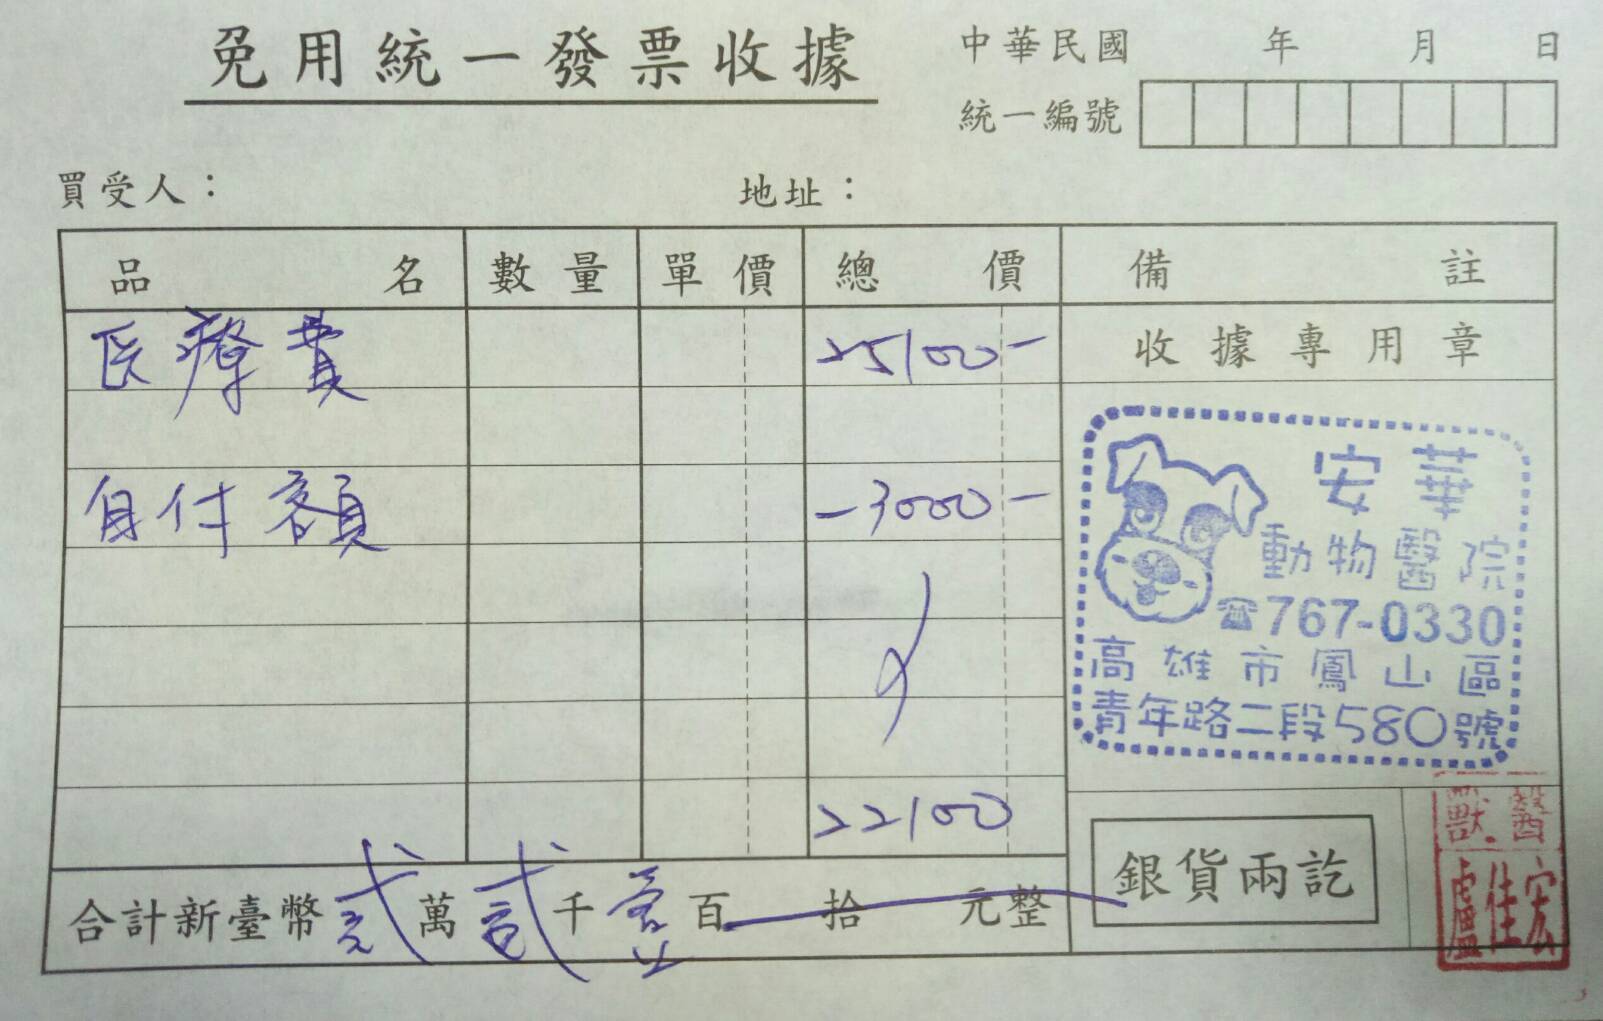 免用統一發票收據
中華民國 年 月 日
統一編號
買受人： 地址：
品名 數量 單價 總價 備註
医療費 25100-
收據專用章
自付額 -3000-
安華
動物醫院
☎767-0330
高雄市鳳山區
青年路二段580號
22100
合計新臺幣貳萬貳千壹百拾元整
銀貨兩訖
獸醫
盧佳宏